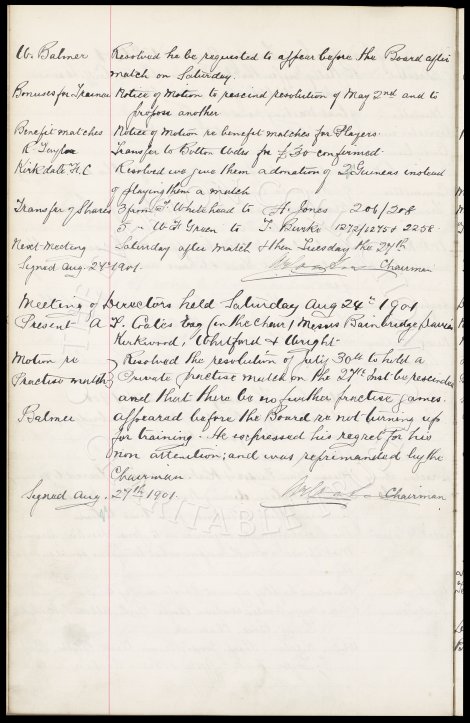 W. Balmer Resolved he be requested to appear before the Board after
match on Saturday.
Bonuses for Trainer Notice of Motion to rescind resolution of May 2nd and to
propose another
Benefit matches Notice of Motion re benefit matches for Players.
R Taylor Transfer to Bolton Wdrs for £30 confirmed.
Kirkdale F.C Resolved we give them a donation of 2 Guineas instead
of playing them a match
Transfer of Shares 3 from T Whitehead to H. Jones 206/208
5 - W H Green to T. Burke 1272/1275 & 2258.
Next Meeting Saturday after match & then Tuesday the 27th
Signed Aug. 24th 1901. Chairman
Meeting of Directors held Saturday Aug 24th 1901
Present A T. Coates Esq (in the Chair) Messrs Bainbridge, Davies
Kirkwood, Whitford & Wright.
Motion re Resolved the resolution of July 30th to hold a
Practise match private practise match on the 27th inst be rescinded
and that there be no further practise games.
Balmer appeared before the Board re not turning up
for training. He expressed his regret for his
non attention; and was reprimanded by the
Chairman
Signed Aug. 27th 1901. Chairman